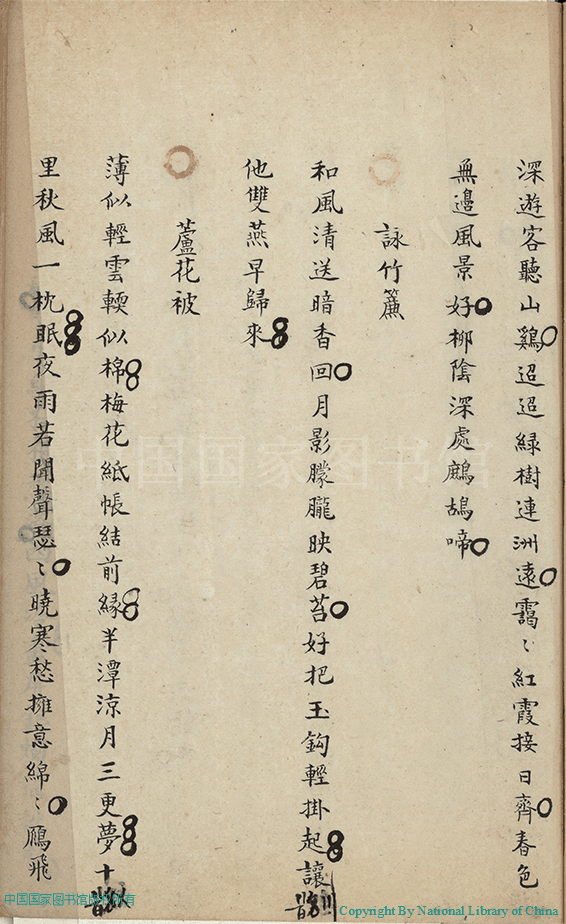 深遊客聽山鷄迢迢綠樹連洲遠靄〻紅霞接日齊春色
無邊風景好柳陰深處鷓鴣啼
詠竹簾
和風清送暗香回月影朦朧映碧苔好把玉鈎輕掛起讓
他雙燕早歸來
蘆花被
薄似輕雲輭似棉梅花紙帳結前緣半潭涼月三更夢十
里秋風一枕眠夜雨若聞聲瑟〻曉寒愁擁意綿〻鴈飛
中国国家图书馆
Copyright By National Library of China